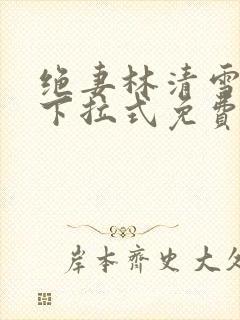 绝妻林清雪
下拉式免費
岸本齊史大久